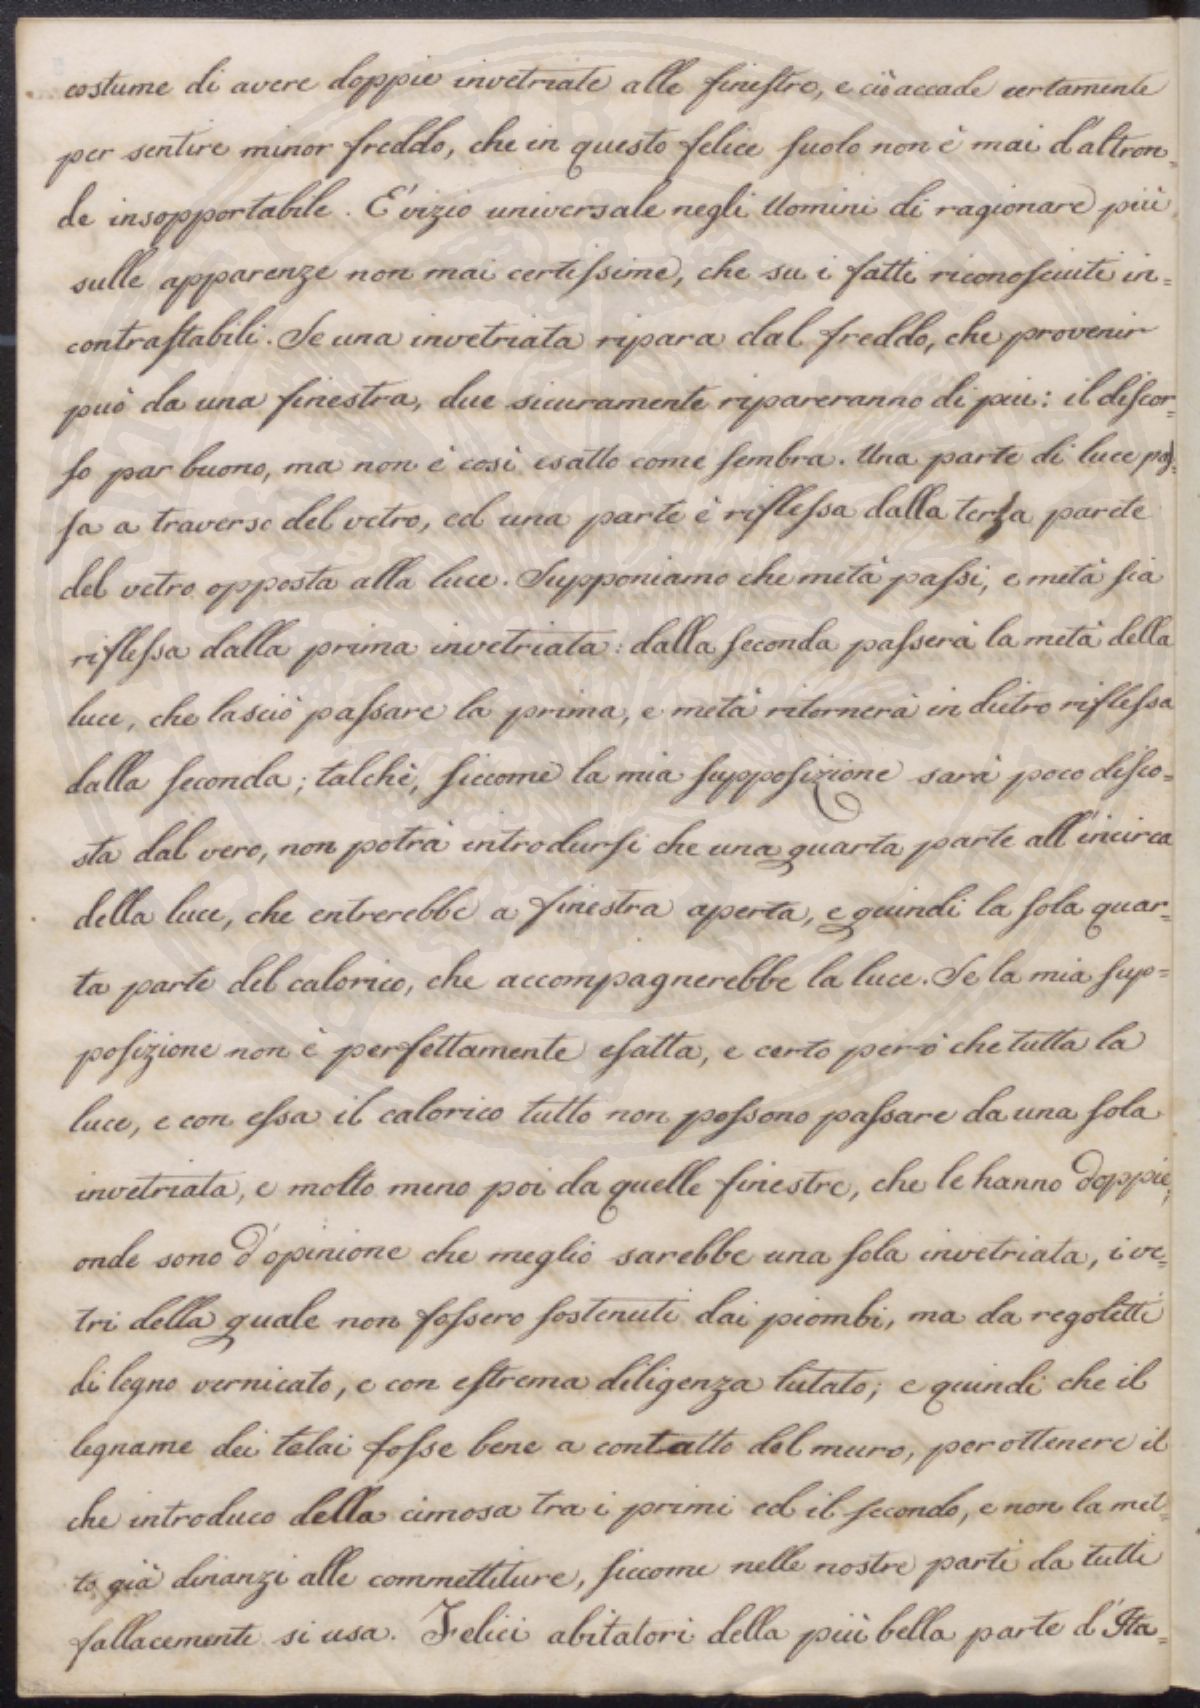 costume di avere doppie invetriate alle finestre, e ciò accade certamente
per sentire minor freddo, che in questo felice suolo non è mai d'altron=
de insopportabile. E' vizio universale negli Uomini di ragionare più
sulle apparenze non mai certissime, che su i fatti riconosciuti in=
contrastabili. Se una invetriata ripara dal freddo, che provenir
può da una finestra, due sicuramente ripareranno di piu: il discor=
so par buono, ma non è così esatto come sembra. Una parte di luce pas=
sa a traverso del vetro, ed una parte è riflessa dalla terza parete
del vetro opposta alla luce. Supponiamo che metà passi, e metà sia
riflessa dalla prima invetriata: dalla seconda passerà la metà della
luce, che lasciò passare la prima, e metà ritornerà in dietro riflessa
dalla seconda; talchè, siccome la mia supposizione sarà poco disco=
sta dal vero, non potrà introdursi che una quarta parte all'incirca
della luce, che entrerebbe a finestra aperta, e quindi la sola quar=
ta parte del calorico, che accompagnerebbe la luce. Se la mia sup=
posizione non è perfettamente esatta, e certo però che tutta la
luce, e con essa il calorico tutto non possono passare da una sola
invetriata, e molto meno poi da quelle finestre, che le hanno doppie,
onde sono d'opinione che meglio sarebbe una sola invetriata, i ve=
tri della quale non fossero sostenuti dai piombi, ma da regoletti
di legno vernicato, e con estrema diligenza lutato; e quindi che il
legname dei telai fosse bene a contatto del muro, per ottenere il
che introduco della cimosa tra i primi ed il secondo, e non la met=
to già dinanzi alle commettiture, siccome nelle nostre parti da tutti
fallacemente si usa. Felici abitatori della più bella parte d'Ita=